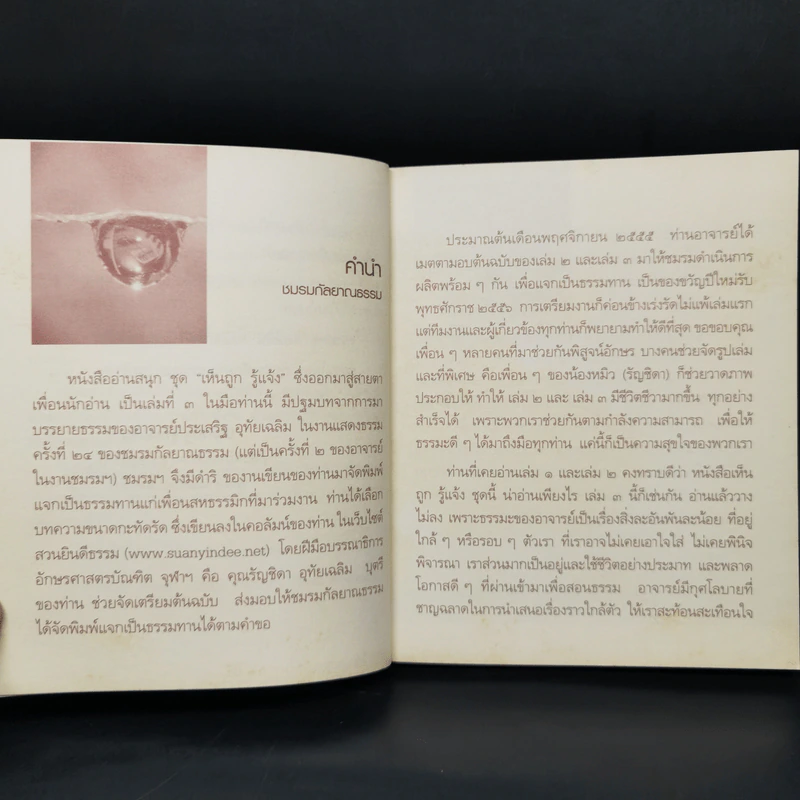 คำนำ
ชมรมกัลยาณธรรม
หนังสืออ่านสนุก ชุด “เห็นถูก รู้แจ้ง” ซึ่งออกมาสู่สายตา
เพื่อนักอ่าน เป็นเล่มที่ ๓ ในมือท่านนี้ มีปฐมบทจากการมา
บรรยายธรรมของอาจารย์ประเสริฐ อุทัยเฉลิม ในงานแสดงธรรม
ครั้งที่ ๒๔ ของชมรมกัลยาณธรรม (แต่เป็นครั้งที่ ๒ ของอาจารย์
ในงานชมรมฯ) ชมรมฯ จึงมีดำริ ของานเขียนของท่านมาจัดพิมพ์
แจกเป็นธรรมทานแก่เพื่อนสหธรรมิกที่มาร่วมงาน ท่านได้เลือก
บทความขนาดกะทัดรัด ซึ่งเขียนลงในคอลัมน์ของท่าน ในเว็บไซต์
สวนยินดีธรรม (www.suanyindee.net) โดยฝีมือบรรณาธิการ
อักษรศาสตรบัณฑิต จุฬาฯ คือ คุณรัญชิดา อุทัยเฉลิม บุตรี
ของท่าน ช่วยจัดเตรียมต้นฉบับ ส่งมอบให้ชมรมกัลยาณธรรม
ได้จัดพิมพ์แจกเป็นธรรมทานได้ตามคำขอ
ประมาณต้นเดือนพฤศจิกายน ๒๕๕๕ ท่านอาจารย์ได้
เมตตามอบต้นฉบับของเล่ม ๒ และเล่ม ๓ มาให้ชมรมดำเนินการ
ผลิตพร้อม ๆ กัน เพื่อแจกเป็นธรรมทาน เป็นของขวัญปีใหม่รับ
พุทธศักราช ๒๕๕๖ การเตรียมงานก็ค่อนข้างเร่งรัดไม่แพ้เล่มแรก
แต่ทีมงานและผู้เกี่ยวข้องทุกท่านก็พยายามทำให้ดีที่สุด ขอขอบคุณ
เพื่อน ๆ หลายคนที่มาช่วยกันพิสูจน์อักษร บางคนช่วยจัดรูปเล่ม
และที่พิเศษ คือเพื่อน ๆ ของน้องหมิว (รัญชิดา) ก็ช่วยวาดภาพ
ประกอบให้ ทำให้ เล่ม ๒ และ เล่ม ๓ มีชีวิตชีวามากขึ้น ทุกอย่าง
สำเร็จได้ เพราะพวกเราช่วยกันตามกำลังความสามารถ เพื่อให้
ธรรมะดี ๆ ได้มาถึงมือทุกท่าน แค่นี้ก็เป็นความสุขใจของพวกเรา
ท่านที่เคยอ่านเล่ม ๑ และเล่ม ๒ คงทราบดีว่า หนังสือเห็น
ถูก รู้แจ้ง ชุดนี้ น่าอ่านเพียงไร เล่ม ๓ นี้ก็เช่นกัน อ่านแล้ววาง
ไม่ลง เพราะธรรมะของอาจารย์เป็นเรื่องสิ่งละอันพันละน้อย ที่อยู่
ใกล้ ๆ หรือรอบ ๆ ตัวเรา ที่เราอาจไม่เคยเอาใจใส่ ไม่เคยพินิจ
พิจารณา เราส่วนมากเป็นอยู่และใช้ชีวิตอย่างประมาท และพลาด
โอกาสดี ๆ ที่ผ่านเข้ามาเพื่อสอนธรรม อาจารย์มีกุศโลบายที่
ชาญฉลาดในการนำเสนอเรื่องราวใกล้ตัว ให้เราสะท้อนสะเทือนใจ